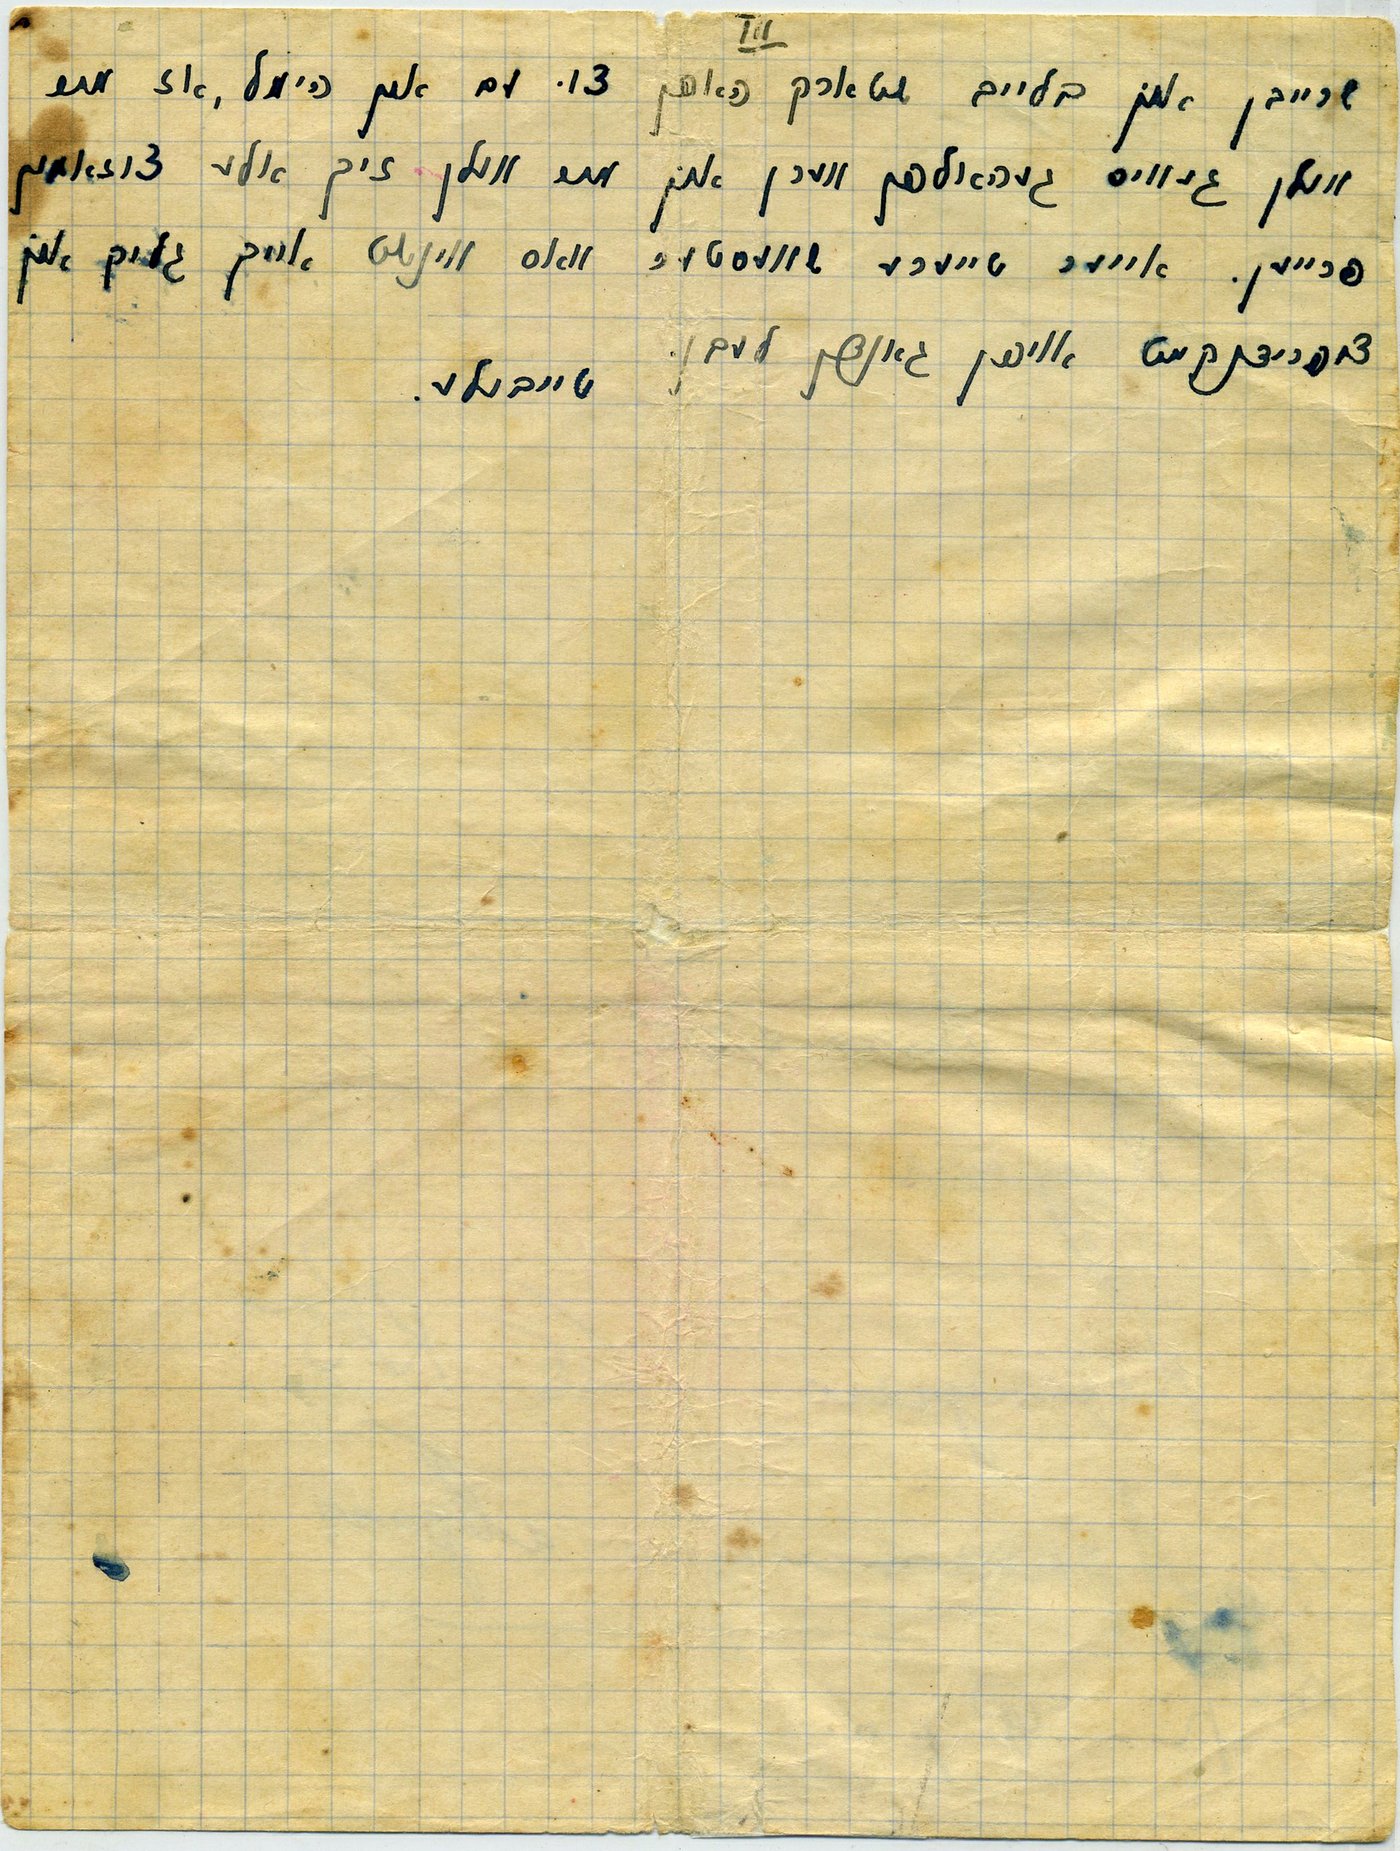 III
שרייבן און בלייב שטארק האפן צו. עם אין הימל, אז מיר
וועלן געוויס געהאלפן ווערן און מיר וועלן זיך אלע צוזאמען
פרייען. אייער טייערע שוועסטער וואס ווינטשט אייך גליק און
צופרידנקייט אויפן גאנצן לעבן.
טייבעלע.